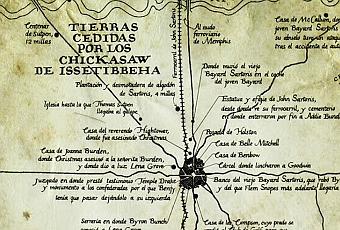 Centenar
de Sutpen,
12 millas
TIERRAS
CEDIDAS
POR LOS
CHICKASAW
DE ISSETIBBEHA
Al nudo
ferroviario
de Memphis
Casa de McCallum, de
joven Bayard Sartoris
su abuelo
tras el accidente de auto
Plantación y desmotadora de algodón
de Sartoris, 4 millas
Donde murió el viejo
Bayard Sartoris en el coche
del joven Bayard
Ferrocarril de John Sartoris
Iglesia hasta la que Thomas Sutpen
Estatua y efigie de John Sartoris,
desde donde ve su ferrocarril, y cementerio
en donde enterraron por fin a Addie Bund
Casa del reverendo Hightower,
donde fue asesinado Christmas
Posada de Holston
Casa de Belle Mitchell
Casa de Joanna Burden,
donde Christmas asesinó a la señorita Burden,
y donde dio a luz Lena Grove
Casa de Benbow
Cárcel donde lincharon a Goodwin
Juzgado en donde prestó testimonio Temple Drake
y monumento a los confederados por el que Benjy
tenía que pasar dejándolo a su izquierda
Banco del viejo Bayard Sartoris, que robó By
y del que Flem Snopes más adelante llegaría
Serrería en donde Byron Bunch
Casa de los Compson, cuyo prado se